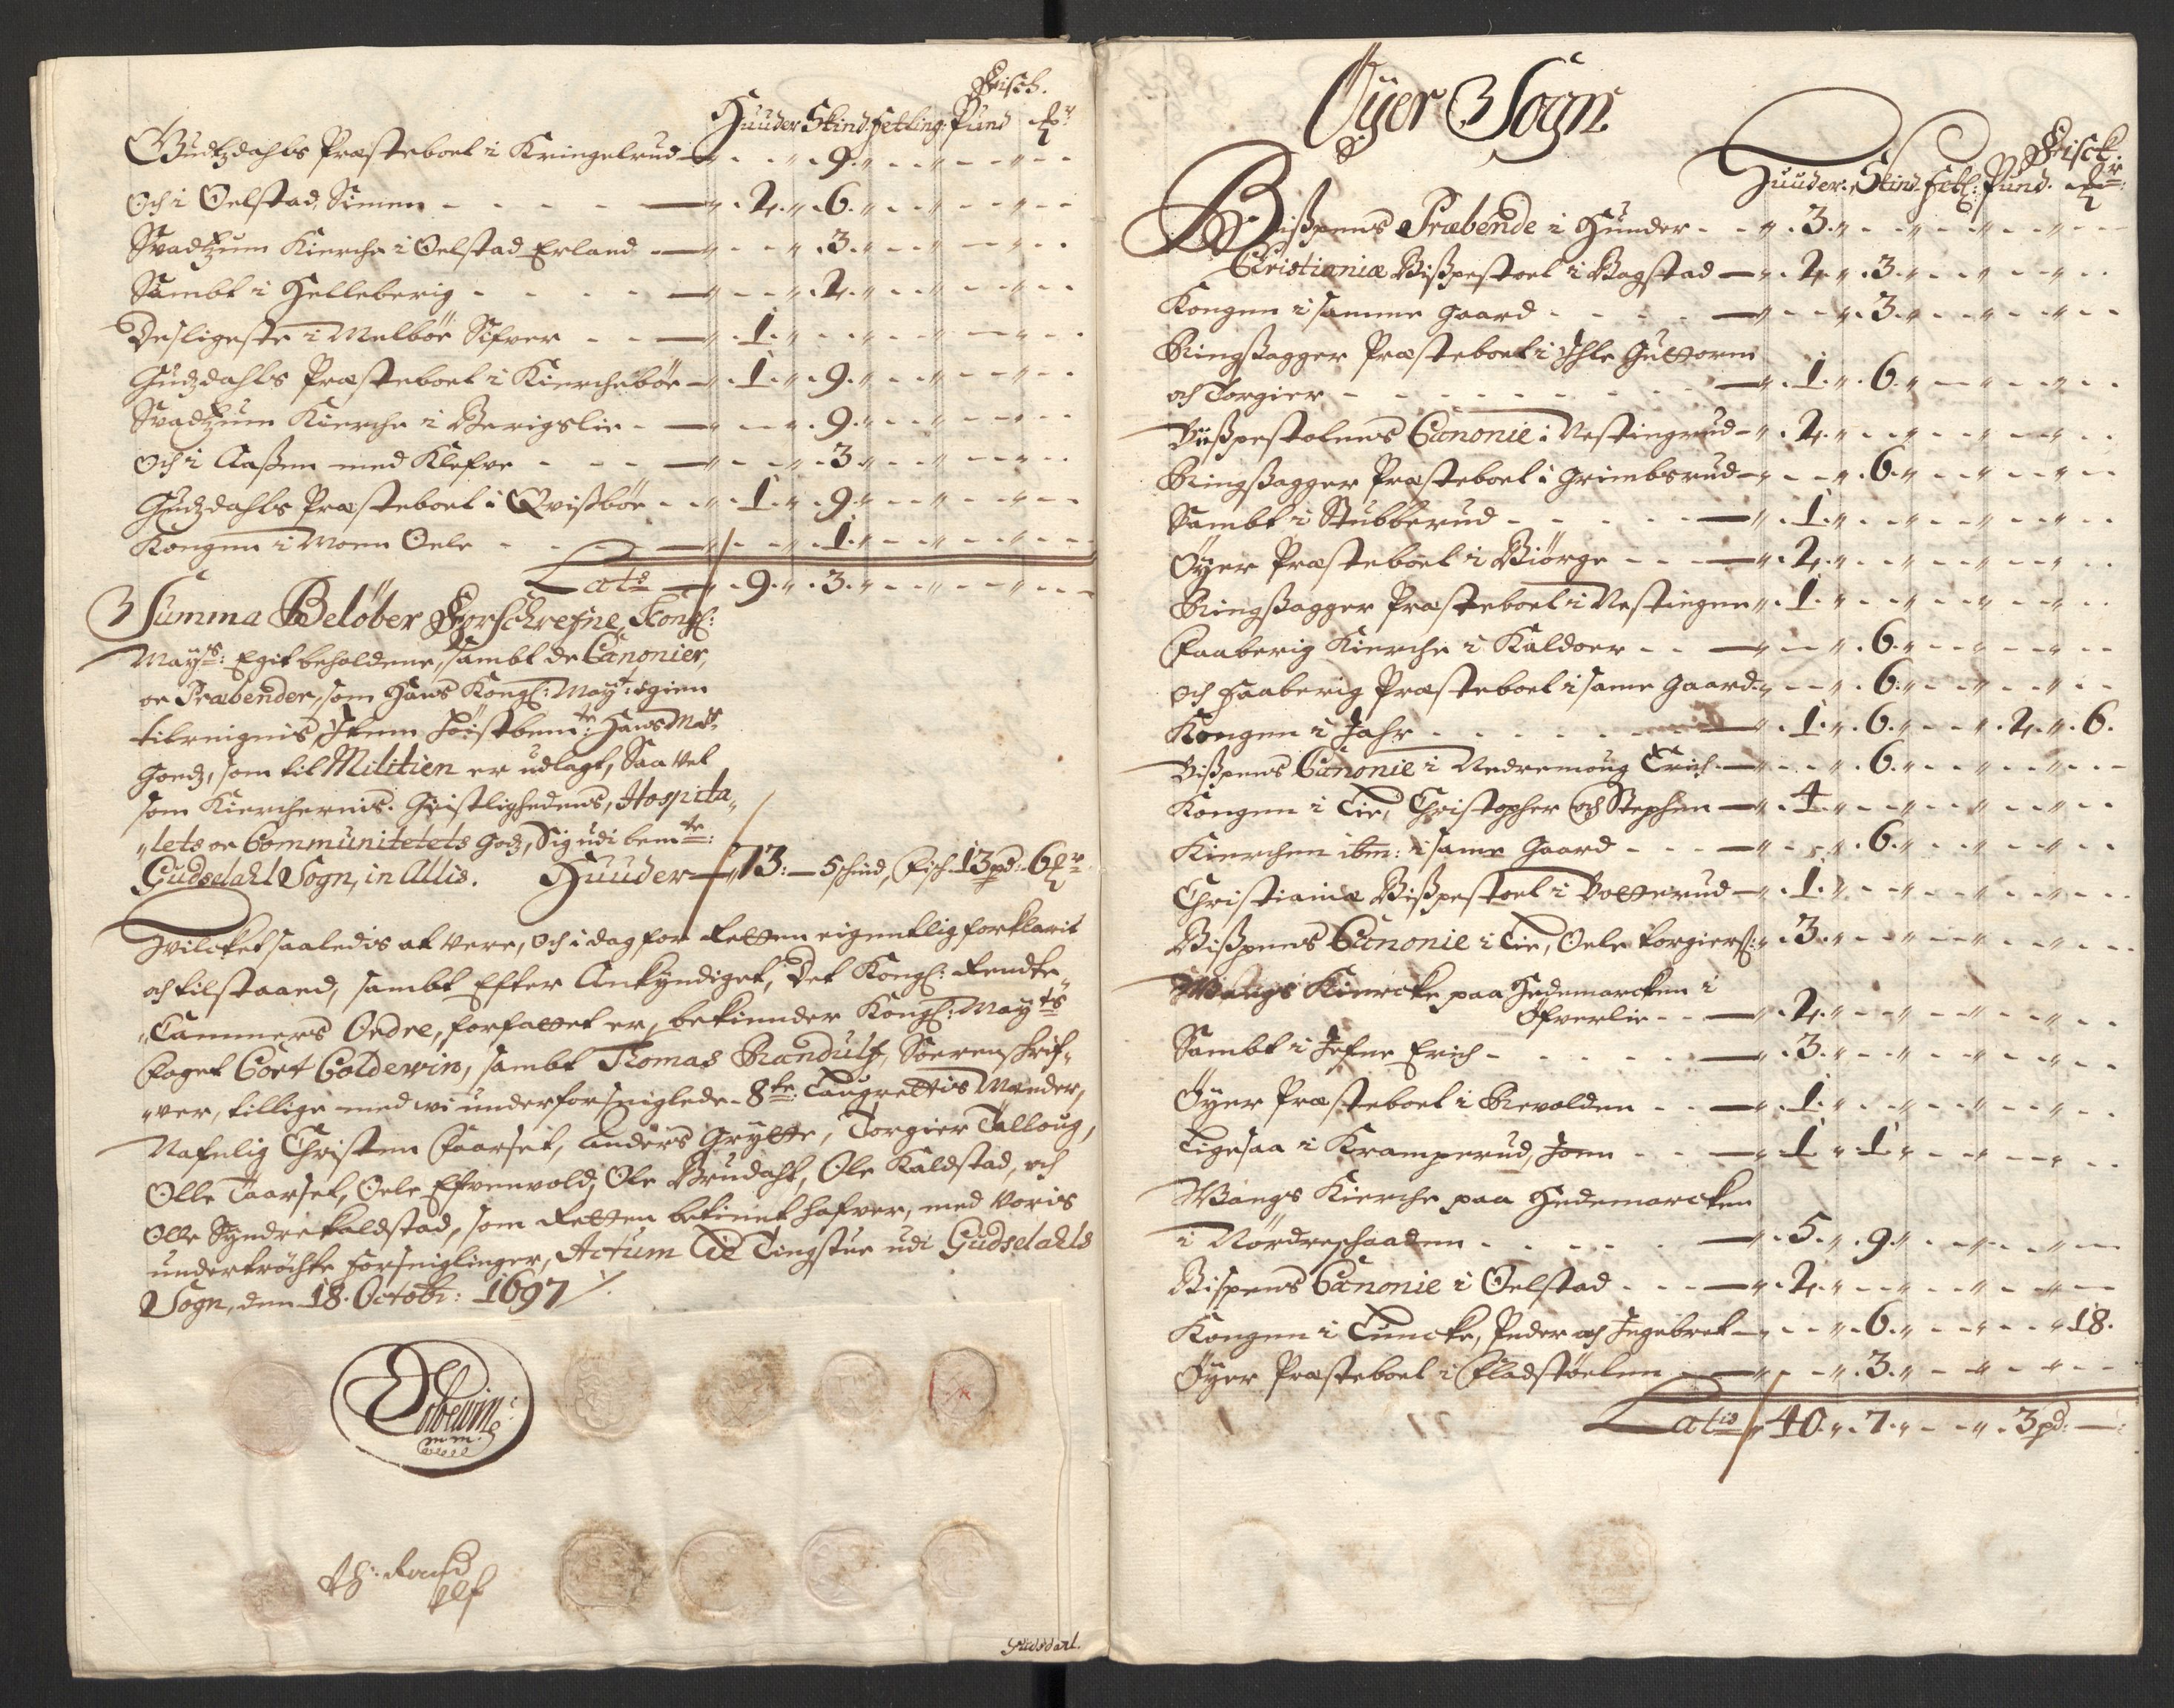 Fisch.
Huuder Skind: fetling: Pund
Gudzdahls Præsteboel i Kringelrud — 9
Och i Oelstad, Simen — 2. 6.
Svadzum Kierche i Oelstad Erland — 3.
Sambt i Helleberig — 2.
Desligeste i Melböe Sifver — 1.
Gudzdahls Præsteboel i Kiercheböe — 1. 9.
Svadzum Kierche i Berigslie — 9.
Och i Aaßen med Klefve — 3
Gudzdahls Præsteboel i Qvistböe — 1. 9.
Kongen i Moen Oele — 1.
Latis — 9. 3.
Summa Belöber Forschrefne Kongl:
Mayts: Egit beholdene, sambt de Canonier,
oc Præbender, som Hans Kongl: Mayt: igien
tilreignis, Item höistbemte: Hans Mts
Goedz, som til Militien er udlagt, Saa vel
som Kierchernis. Geistlighedens, Hospita„
„lets oc Communitetets godz, Sig udi bemte:
Gudsdahl Sogn, in Allis. Huuder — 73: — 5 schind, Fisch 13 pd: 6
Hvilcket saaledis at vere, och i dag for Retten eigentlig forklarit
och tilstaaed, sambt Efter Ankyndiget, Det Kongl: Rendte„
„Cammers Ordre, forfattet er, bekiender Kongl: Mayts
Foget Cort Coldevin, sambt Thomas Randulf, Sorenschrif„
„ver, tillige med vi underforseiglede 8te: Laugrettis Mænder,
Nafnlig Christen Faarset, Anders Grytte, Torgier Talloug,
Olle Taarset, Oele Efvenvold, Ole Brudahl, Ole Kaldstad, och
Olle Syndrekaldstad, som Retten betient hafver, med voris
undertröchte forseiglinger, Actum Lie Tingstue udi Gudsdahls
Sogn, den 18. Octobr: 1697 ⁄.
Coldevin
mm.
Th: Rand
ulf
Gudsdarl.
Öyer Sogn
Fisck:
Huuder. Skind. fetl: Pund.
Bißpens Præbende i Hunder — 3.
Christianiæ Bißpestoel i Bagstad — 2. 3.
Kongen i samme gaard — 3.
Ringsagger Præsteboel i Ihle Guttorm
och Torgier — 1. 6.
Bißpestolens Canonie i Nestingrud — 2.
Ringsagger Præsteboel i Grimbsrud — 6.
Sambt i Stubberud — 1.
Öyer Præsteboel i Biörge — 2.
Ringsagger Præsteboel i Nestingen — 1.
Faaberig Kierche i Kaldoer — 6.
och Faaberig Præsteboel i same gaard — 6.
Kongen i Jahr — 1. 6. 2. 6.
Bißpens Canonie i Nedremoug Erich — 6.
Kongen i Lie, Christopher och Stephen — 4
Kierchen ibm: i same gaard — 6.
Christianiæ Bißpestoel i Botterud — 1.
Bißpens Canonie i Lie, Oele Torgiers: — 3.
Wangs Kiercke paa Hedemarcken i
Öfverlie — 2.
Sambt i Jefne Erich — 3.
Öyer Præsteboel i Revolden — 1.
Ligesaa i Kramperud, Joen — 1 1
Wangs Kierche paa Hedemarcken
i Nordreschaaden — 5. 9.
Bispens Canonie i Oelstad — 2.
Kongen i Luncke, Peder och Ingebret — 6. 18.
Öyer Præsteboel i Fladstöelen — 3.
Latis 40. 7. 3 pd: —